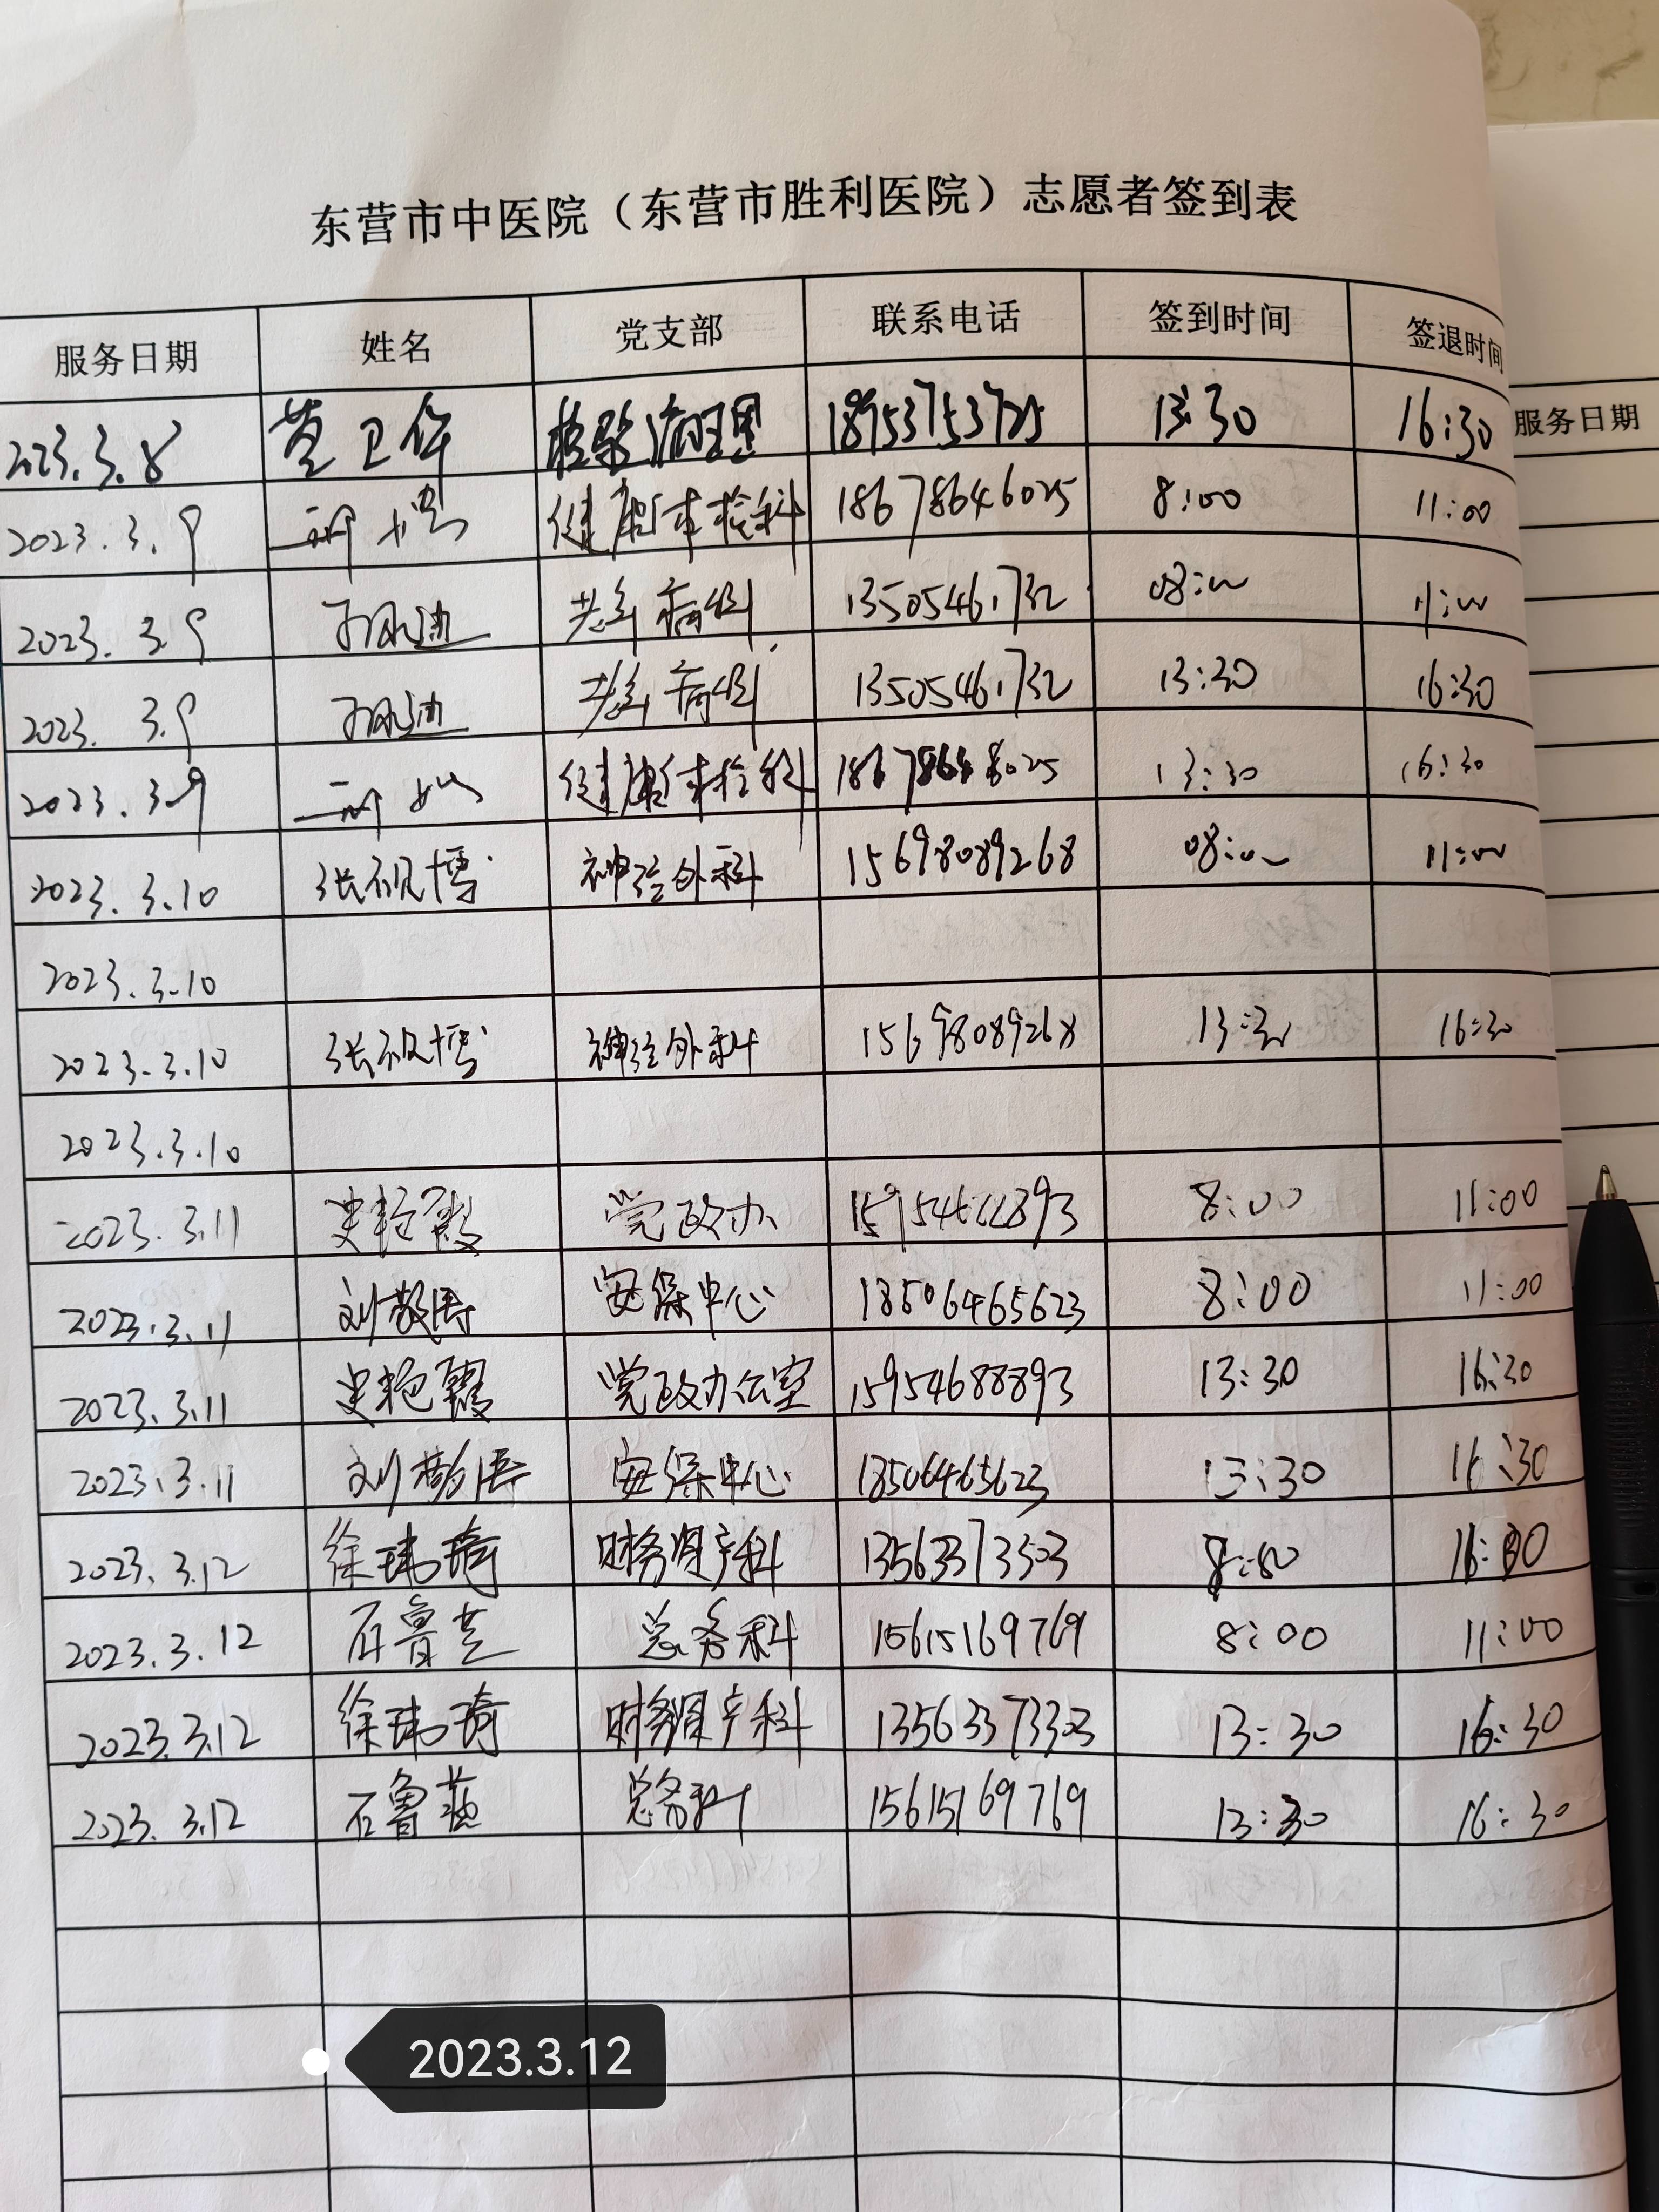 东营市中医院（东营市胜利医院）志愿者签到表
服务日期 姓名 党支部 联系电话 签到时间 签退时间
服务日期
2023.3.8 黄卫年 检验病理 18953753725 13:30 16:30
2023.3.9 健康体检科 18678646025 8:00 11:00
2023.3.9 老年病科 13505461732 08:00 11:00
2023.3.9 老年病科 13505461732 13:30 16:30
2023.3.9 健康体检科 13:30 16:30
2023.3.10 张砚博 神经外科 15698089268 08:00 11:00
2023.3.10
2023.3.10 张砚博 神经外科 15698089268 13:30 16:30
2023.3.10
2023.3.11 史艳霞 党政办 8:00 11:00
2023.3.11 刘敬涛 安保中心 18506465623 8:00 11:00
2023.3.11 史艳霞 党政办公室 15954688893 13:30 16:30
2023.3.11 刘敬涛 安保中心 18506465623 13:30 16:30
2023.3.12 徐玮琦 财务资产科 13563373303 8:00 16:30
2023.3.12 石鲁燕 总务科 15615169769 8:00 11:00
2023.3.12 徐玮琦 财务资产科 13563373303 13:30 16:30
2023.3.12 石鲁燕 总务科 15615169769 13:30 16:30
2023.3.12